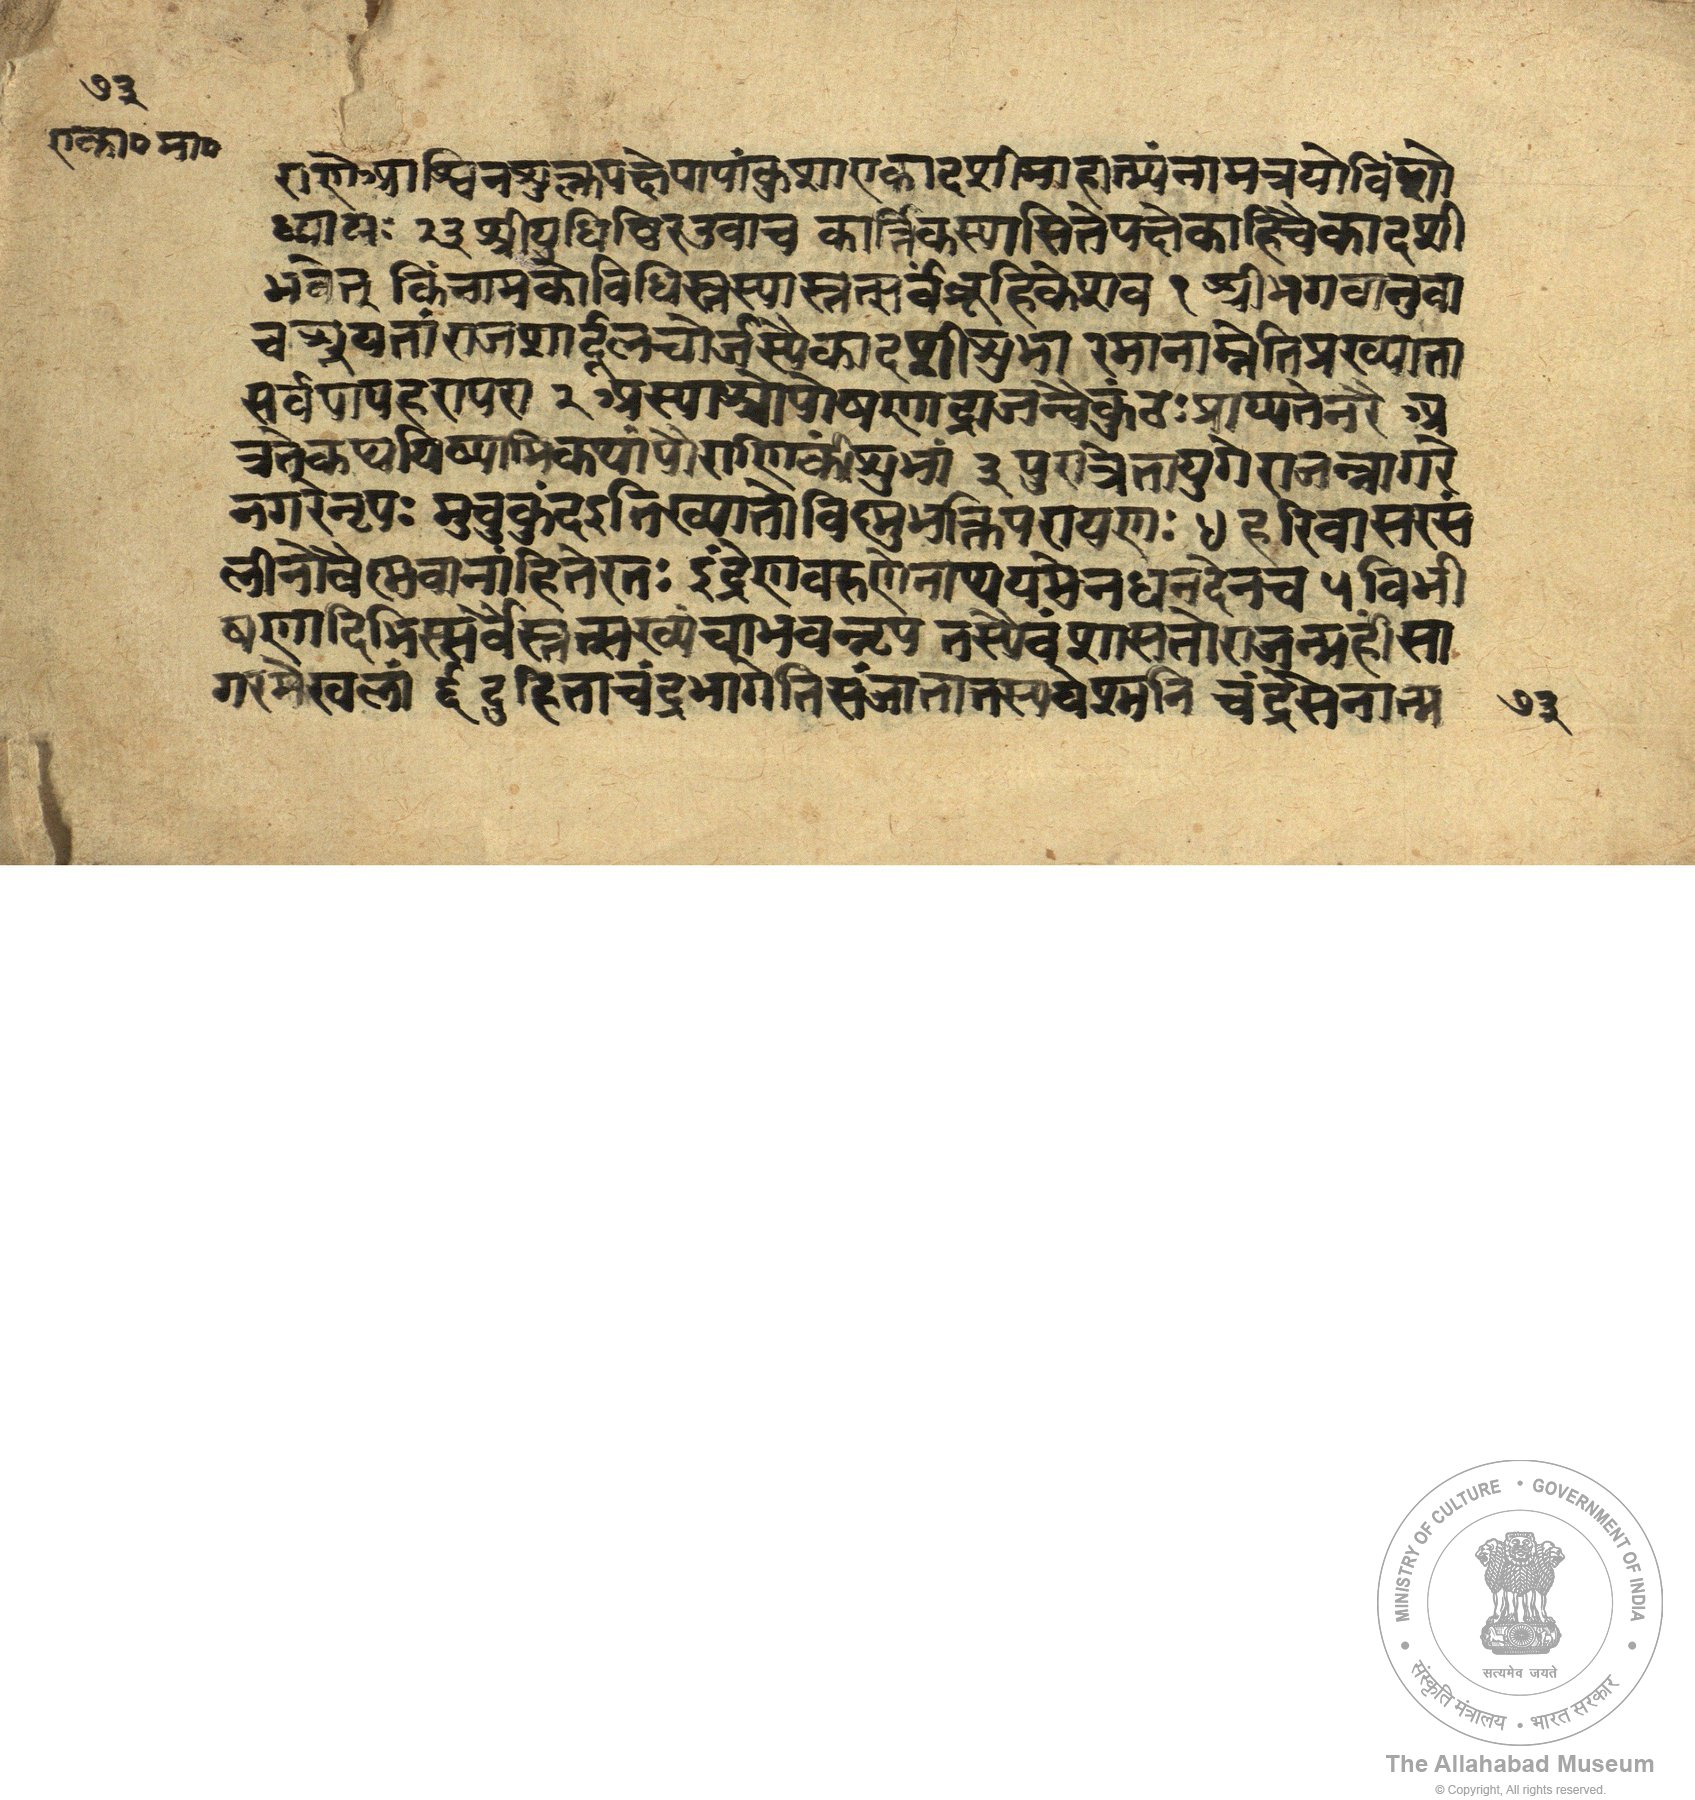 ७३
एका० मा०
राणेआश्विनशुक्लपक्षेपापांकुशाएकादशीमाहात्म्यंनामत्रयोविंशो
ध्यायः २३ श्रीयुधिष्ठिरउवाच कार्त्तिकस्यासितेपक्षेकाह्विचैकादशी
भवेत् किंनामकोविधिस्तस्यास्तत्सर्वंब्रूहिकेशव १ श्रीभगवानुवा
च श्रुयतांराजशार्दूलचोर्जस्यैकादशीशुभा रमानाम्नेतिप्रख्याता
सर्वपापहरापरा २ अस्याश्चोपोषणाद्राजन्वैकुंठःप्राप्यतेनरै अ
त्रतेकथयिष्यामिकथांपौराणिकींशुभां ३ पुरात्रेतायुगेराजन्नागरे
नगरेनृपः मुचुकुंदइतिख्यातोविष्णुभक्तिपरायणः ४ हरिवासरसं
लीनोवैष्णवानांहितेरतः इंद्रेणवरुणेनाप्ययमेनधनदेनच ५ विभी
षणादिभिस्सर्वैस्तत्सख्यंचाभवन्नृप तस्यैवंशासतोराजन्महींसा
गरमेखलां ६ दुहिताचंद्रभागेतिसंजातातस्यवेश्मनि चंद्रसेनात्म
७३
MINISTRY OF CULTURE • GOVERNMENT OF INDIA
सत्यमेव जयते
संस्कृति मंत्रालय • भारत सरकार
The Allahabad Museum
© Copyright, All rights reserved.